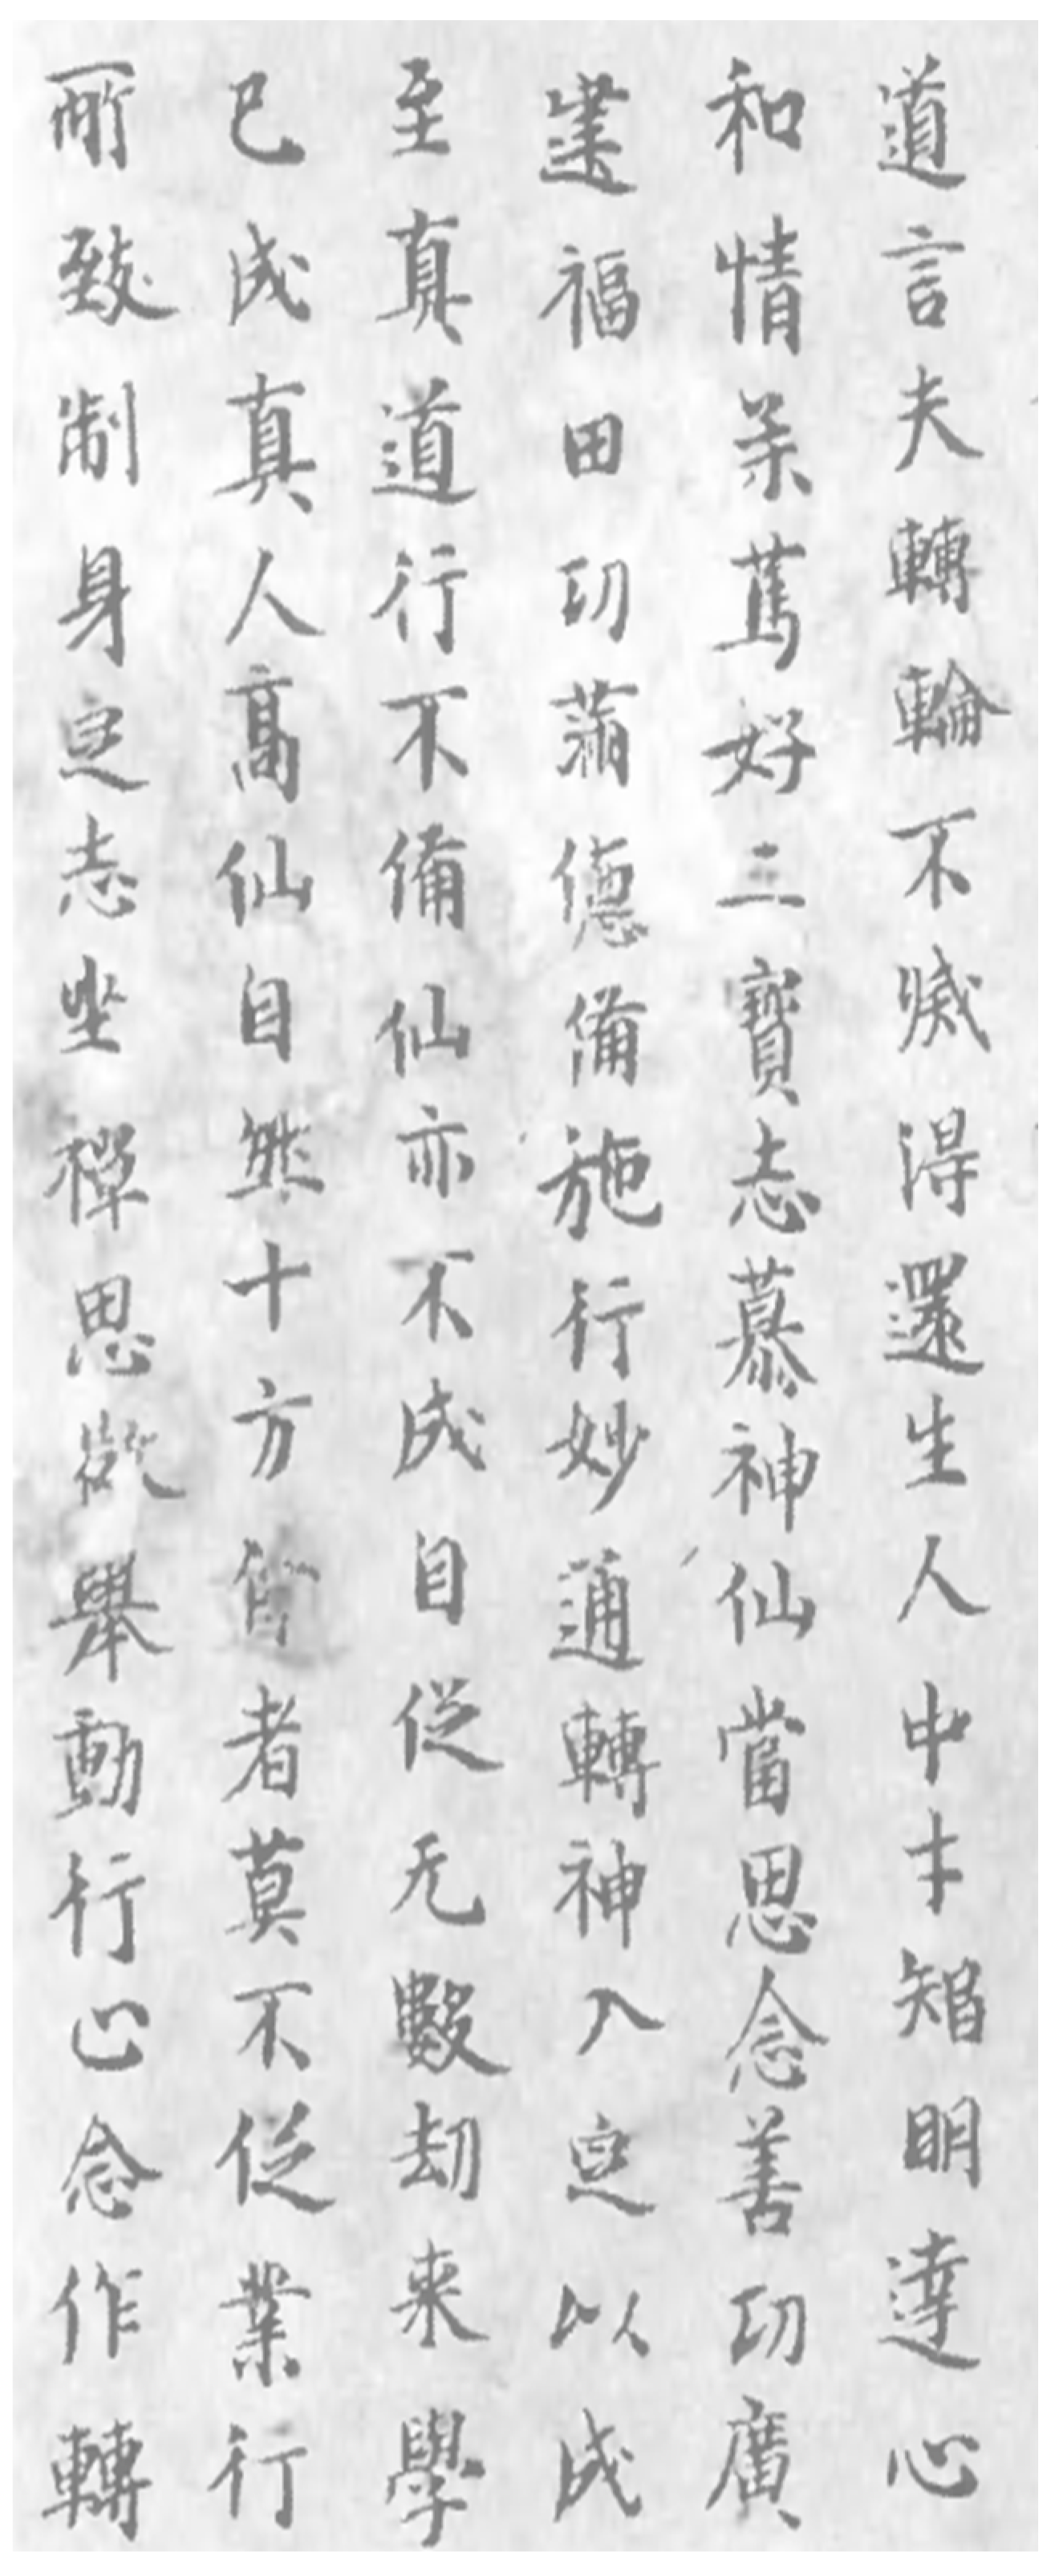 道言夫轉輪不滅得還生人中才智明達心
和情柔篤好三寶志慕神仙當思念善功廣
建福田功滿德備施行妙通轉神入定以成
至真道行不備仙亦不成自從无數劫來學
已成真人高仙自然十方佛者莫不從業行
所致制身定志坐禪思微舉動行心念作轉